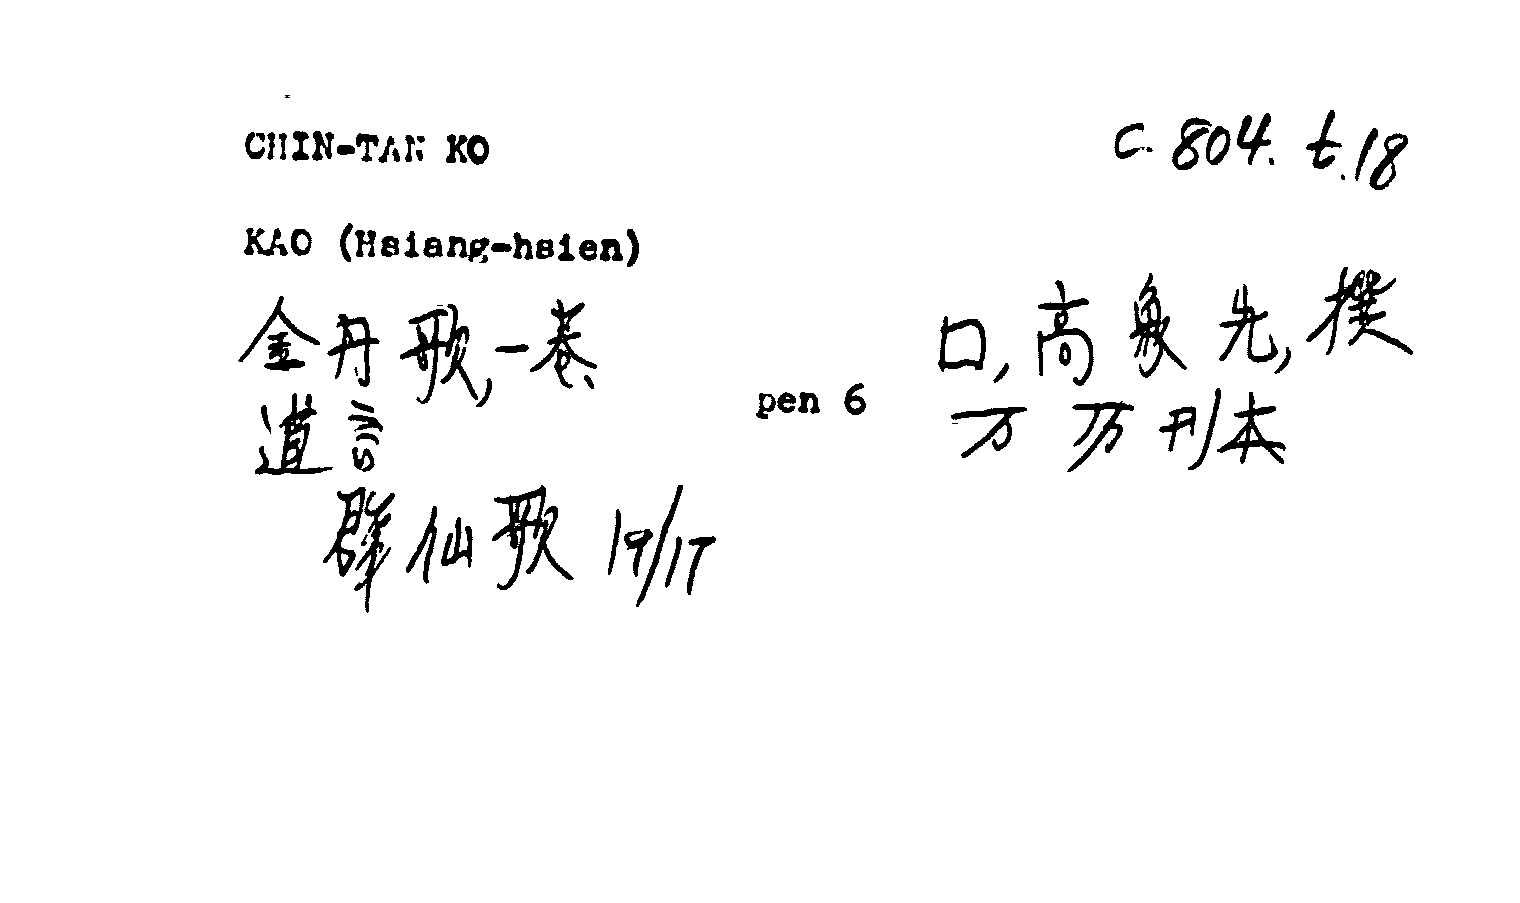 CHIN-TAN KO c.804.t.18
KAO (Hsiang-hsien)
金丹歌,一卷 口,高象先,撰
道言 pen 6 万历刊本
群仙歌 19/17